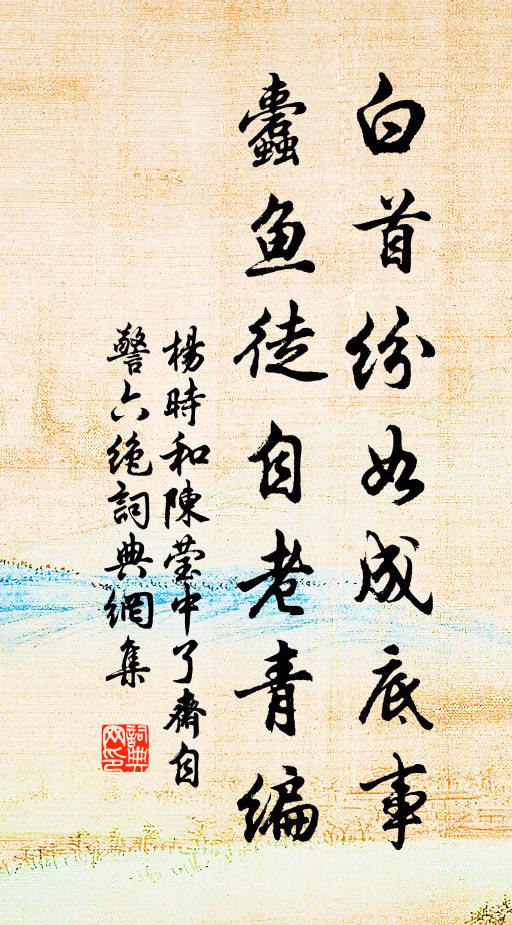 白首纷如成底事
蠹鱼徒自老青编
楊時和陳莹中了齋自
警六绝詞典網集
詞典
网印